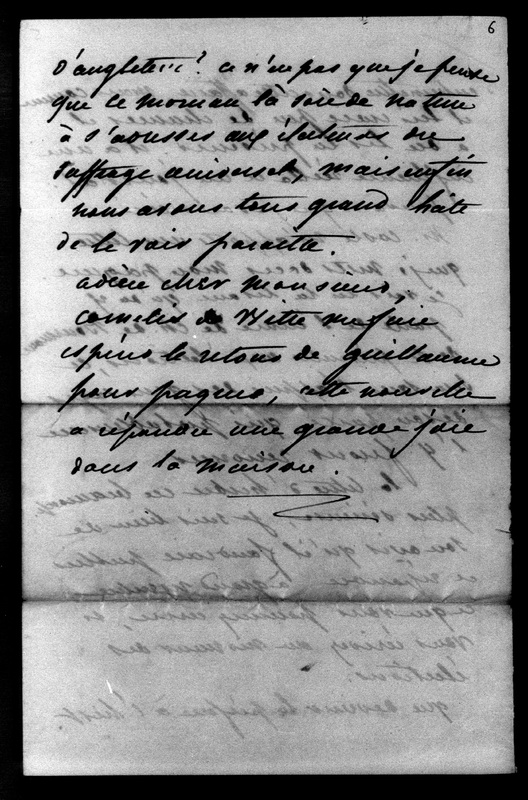 6
d'angleterre? ce n'est pas que je pense
que ce morceau là soit de nature
à s'adresser aux électeurs du
suffrage universel, mais enfin
nous avons tous grand hâte
de le voir paraître.
adieu cher monsieur,
cornelis de Witt me fait
espérer le retour de guillaume
pour paques, cette nouvelle
a répandu une grande joie
dans la maison.